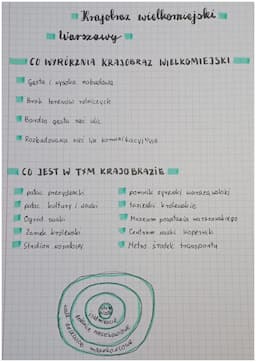 Krajobraz wielkomiejski
Warszawy
CO WYRÓŻNIA KRAJOBRAZ WIELKOMIEJSKI
Gęsta i wysoka zabudowa
Brak terenów rolniczych
Bardzo gęsta sieć ulic
Rozbudowana sieć
CO JEST W TYM KRAJOBRAZIE
pałac prezydencki
pałac kultury i nauki
Ogród saski
Zamek królewski
Stadion narodowy
pomnik syrenki warszawskiej
łazienki królewskie
Muzeum powstania warszawskiego
Centrum nauki kopernik
Metro środek transportu